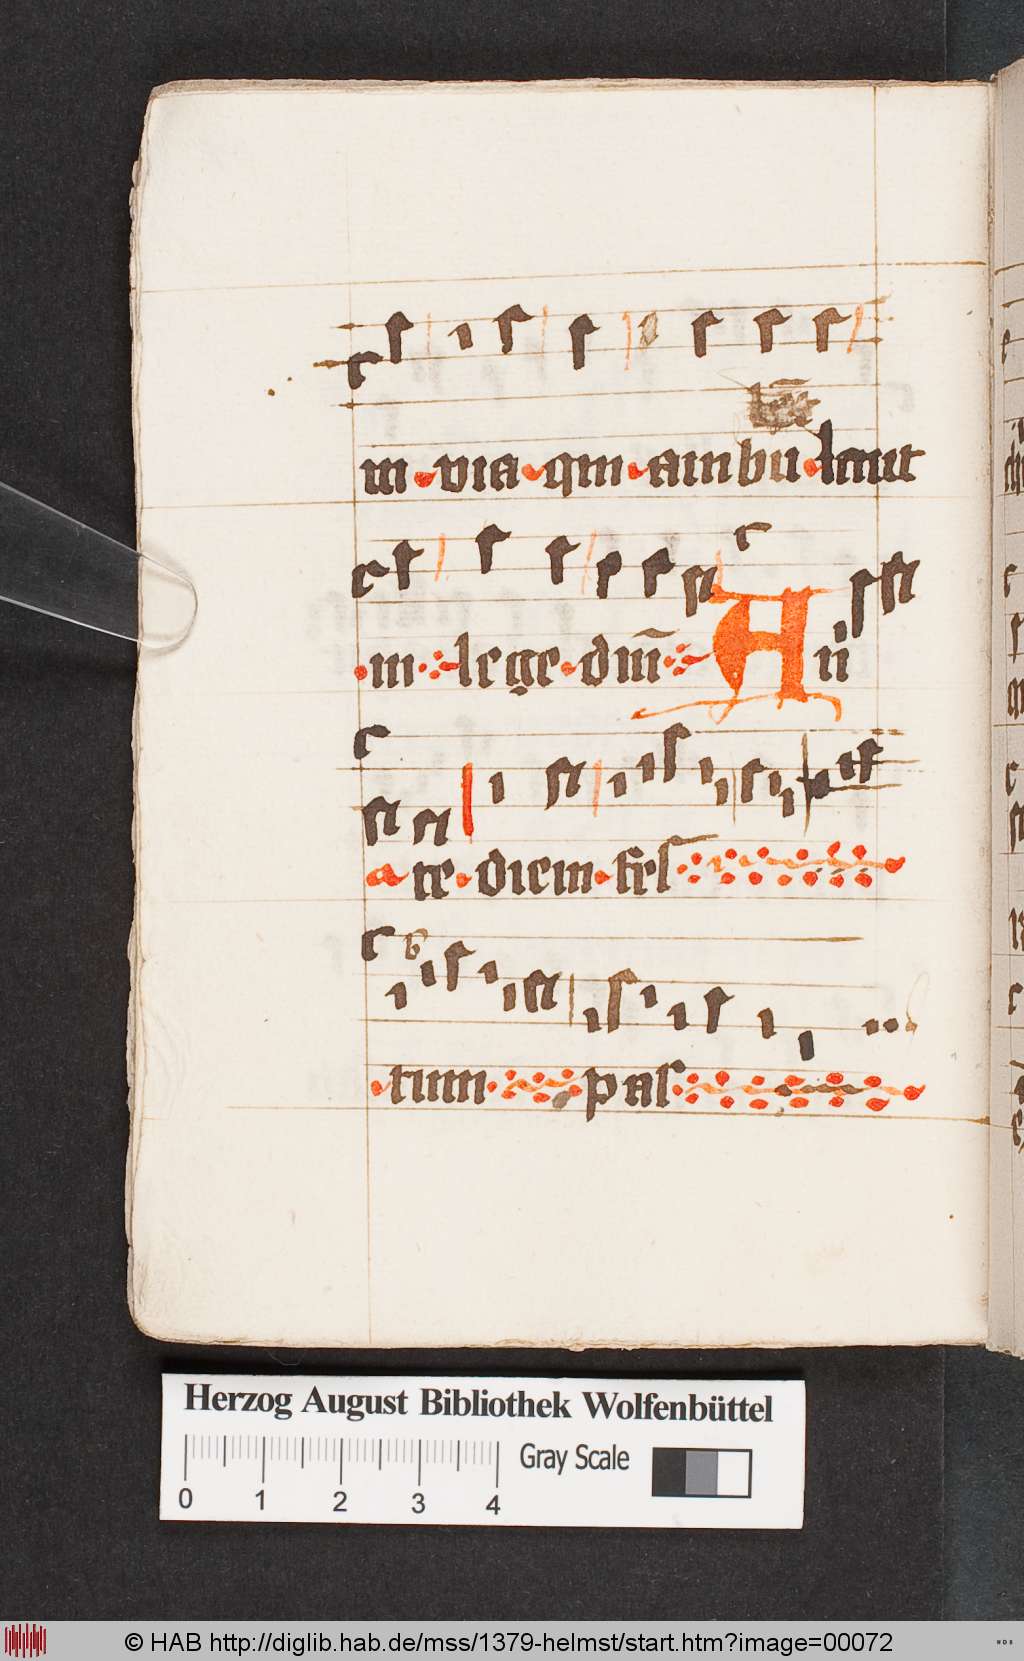 in via qui ambu lant
in lege dm̄ An
a te diem fes
tum pas
Herzog August Bibliothek Wolfenbüttel
Gray Scale
0 1 2 3 4
© HAB http://diglib.hab.de/mss/1379-helmst/start.htm?image=00072